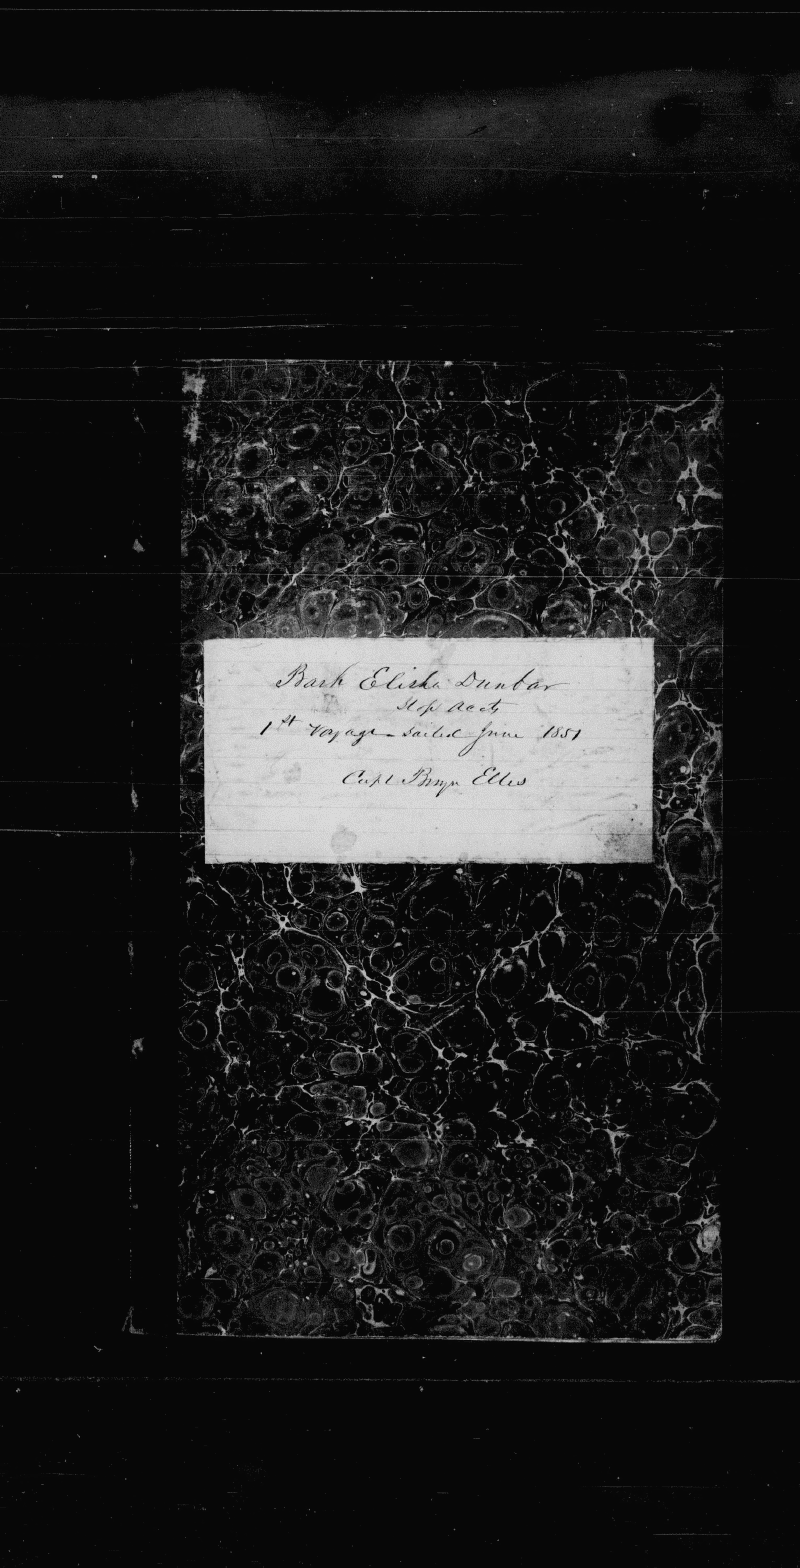 Bark Elisha Dunbar
Slop Accts
1st Voyage - Sailed June 1851
Capt Benjn Ellis